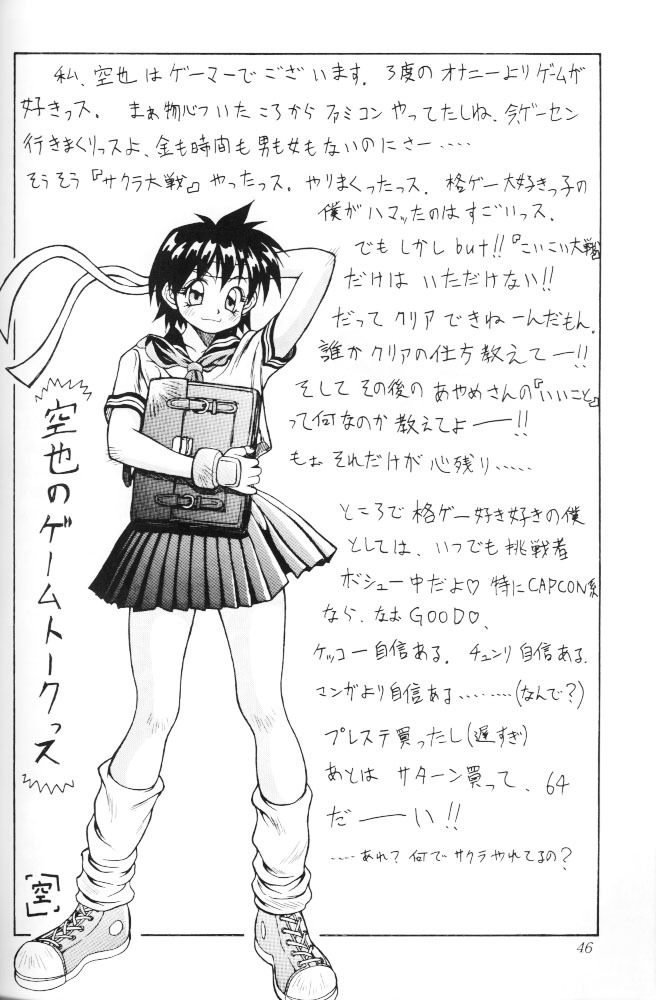 私、空也はゲーマーでございます。3度のオナニーよりゲームが
好きっス。まぁ物心ついたころからファミコンやってたしね、今、ゲーセン
行きまくりっスよ、金も時間も男も女もないのにさー‥‥‥
そうそう『サクラ大戦』やったっス。やりまくったっス。格ゲー大好きっ子の
僕がハマッたのはすごいっス。
でもしかしbut!!『こいこい大戦』
だけはいただけない!!
だってクリアできねーんだもん。
誰かクリアの仕方教えてー!!
そしてその後のあやめさんの『いいこと』
って何なのか教えてよー!!
もぉそれだけが心残り‥‥‥
ところで格ゲー好き好きの僕
としては、いつでも挑戦者
ボシュー中だよ♡ 特にCAPCON系
なら、なおGOOD♡、
ケッコー自信ある。チュンリ自信ある。
マンガより自信ある‥‥‥‥(なんで?)
プレステ買ったし(遅すぎ)
あとはサターン買って、64
だーい!!
‥‥あれ?何でサクラやれてるの?
空也のゲームトークっス
「空」
46